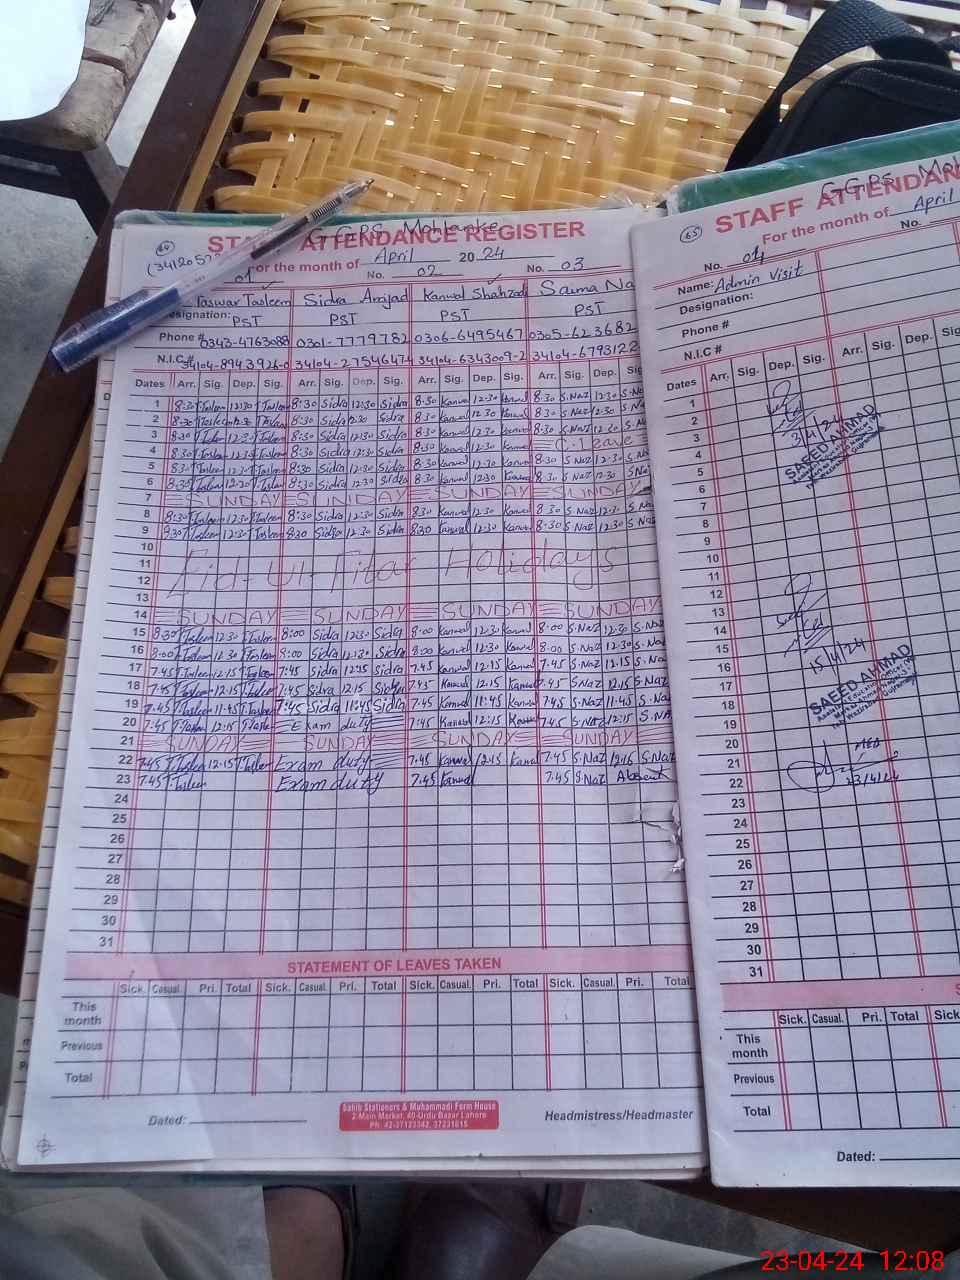 G.G.P.S Mohlanke
STAFF ATTENDANCE REGISTER
64
For the month of April 2024
01 No. 02 No. 03
Taswar Tasleem Sidra Amjad Kanwal Shahzadi Saima Na
Designation: PST PST PST PST
Phone # 0343-4763088 0301-7779782 0306-6495467 0305-623682
N.I.C# 34104-8943926-0 34104-27546474 34104-6343009-2 34104-6793122
Dates Arr. Sig. Dep. Sig. Arr. Sig. Dep. Sig. Arr. Sig. Dep. Sig. Arr. Sig. Dep. Sig.
1 8:30 T.Tasleem 12:30 T.Tasleem 8:30 Sidra 12:30 Sidra 8:30 Kanwal 12:30 Kanwal 8:30 S.Naz 12:30 S.Na
2 8:30 T.Tasleem 12:30 T.Tasleem 8:30 Sidra 12:30 Sidra 8:30 Kanwal 12:30 Kanwal 8:30 S.Naz 12:30 S.Na
3 8:30 T.Tasleem 12:30 T.Tasleem 8:30 Sidra 12:30 Sidra 8:30 Kanwal 12:30 Kanwal 8:30 S.Naz 12:30 S.N
4 8:30 T.Tasleem 12:30 T.Tasleem 8:30 Sidra 12:30 Sidra 8:30 Kanwal 12:30 Kanwal C.Leave
5 8:30 T.Tasleem 12:30 T.Tasleem 8:30 Sidra 12:30 Sidra 8:30 Kanwal 12:30 Kanwal 8:30 S.Naz 12:30 S.Na
6 8:30 T.Tasleem 12:30 T.Tasleem 8:30 Sidra 12:30 Sidra 8:30 Kanwal 12:30 Kanwal 8:30 S.Naz 12:30 S.Na
7 SUNDAY SUNDAY SUNDAY SUNDAY
8 8:30 T.Tasleem 12:30 T.Tasleem 8:30 Sidra 12:30 Sidra 8:30 Kanwal 12:30 Kanwal 8:30 S.Naz 12:30 S.Na
9 8:30 T.Tasleem 12:30 T.Tasleem 8:30 Sidra 12:30 Sidra 8:30 Kanwal 12:30 Kanwal 8:30 S.Naz 12:30 S.Naz
10
11 Eid-Ul-Fitar Holidays
12
13
14 SUNDAY SUNDAY SUNDAY SUNDAY
15 8:30 T.Tasleem 12:30 T.Tasleem 8:00 Sidra 12:30 Sidra 8:00 Kanwal 12:30 Kanwal 8:00 S.Naz 12:30 S.Naz
16 8:00 T.Tasleem 12:30 T.Tasleem 8:00 Sidra 12:30 Sidra 8:00 Kanwal 12:30 Kanwal 8:00 S.Naz 12:30 S.Naz
17 7:45 T.Tasleem 12:15 T.Tasleem 7:45 Sidra 12:15 Sidra 7:45 Kanwal 12:15 Kanwal 7:45 S.Naz 12:15 S.Naz
18 7:45 T.Tasleem 12:15 T.Tasleem 7:45 Sidra 12:15 Sidra 7:45 Kanwal 12:15 Kanwal 7:45 S.Naz 12:15 S.Naz
19 7:45 T.Tasleem 11:45 T.Tasleem 7:45 Sidra 11:45 Sidra 7:45 Kanwal 11:45 Kanwal 7:45 S.Naz 11:45 S.Naz
20 7:45 T.Tasleem 12:15 T.Tasleem Exam duty 7:45 Kanwal 12:15 Kanwal 7:45 S.Naz 12:15 S.Na
21 SUNDAY SUNDAY SUNDAY SUNDAY
22 7:45 T.Tasleem 12:15 T.Tasleem Exam duty 7:45 Kanwal 12:15 Kanwal 7:45 S.Naz 12:15 S.Naz
23 7:45 T.Tasleem Exam duty 7:45 Kanwal 7:45 S.Naz Absent
24
25
26
27
28
29
30
31
STATEMENT OF LEAVES TAKEN
Sick. Casual. Pri. Total Sick. Casual. Pri. Total Sick. Casual. Pri. Total Sick. Casual. Pri. Total
This month
Previous
Total
Dated:
Sahib Stationers & Muhammadi Form House
2-Main Market, 40-Urdu Bazar Lahore
Ph: 42-37123342, 37231615
Headmistress/Headmaster
G.G.P.S Moh
65
STAFF ATTENDAN
For the month of April
No. 04 No.
Name: Admin Visit
Designation:
Phone #
N.I.C #
Dates Arr. Sig. Dep. Sig. Arr. Sig.
1
2
3
4
5
6
7
8
9
10
11
12
13
14
15
16
17
18
19
20
21
22
23
24
25
26
27
28
29
30
31
3/4/24
SAEED AHMAD
15/4/24
SAEED AHMAD
23/4/24
S
Sick. Casual. Pri. Total Sick
This month
Previous
Total
Dated:
23-04-24 12:08